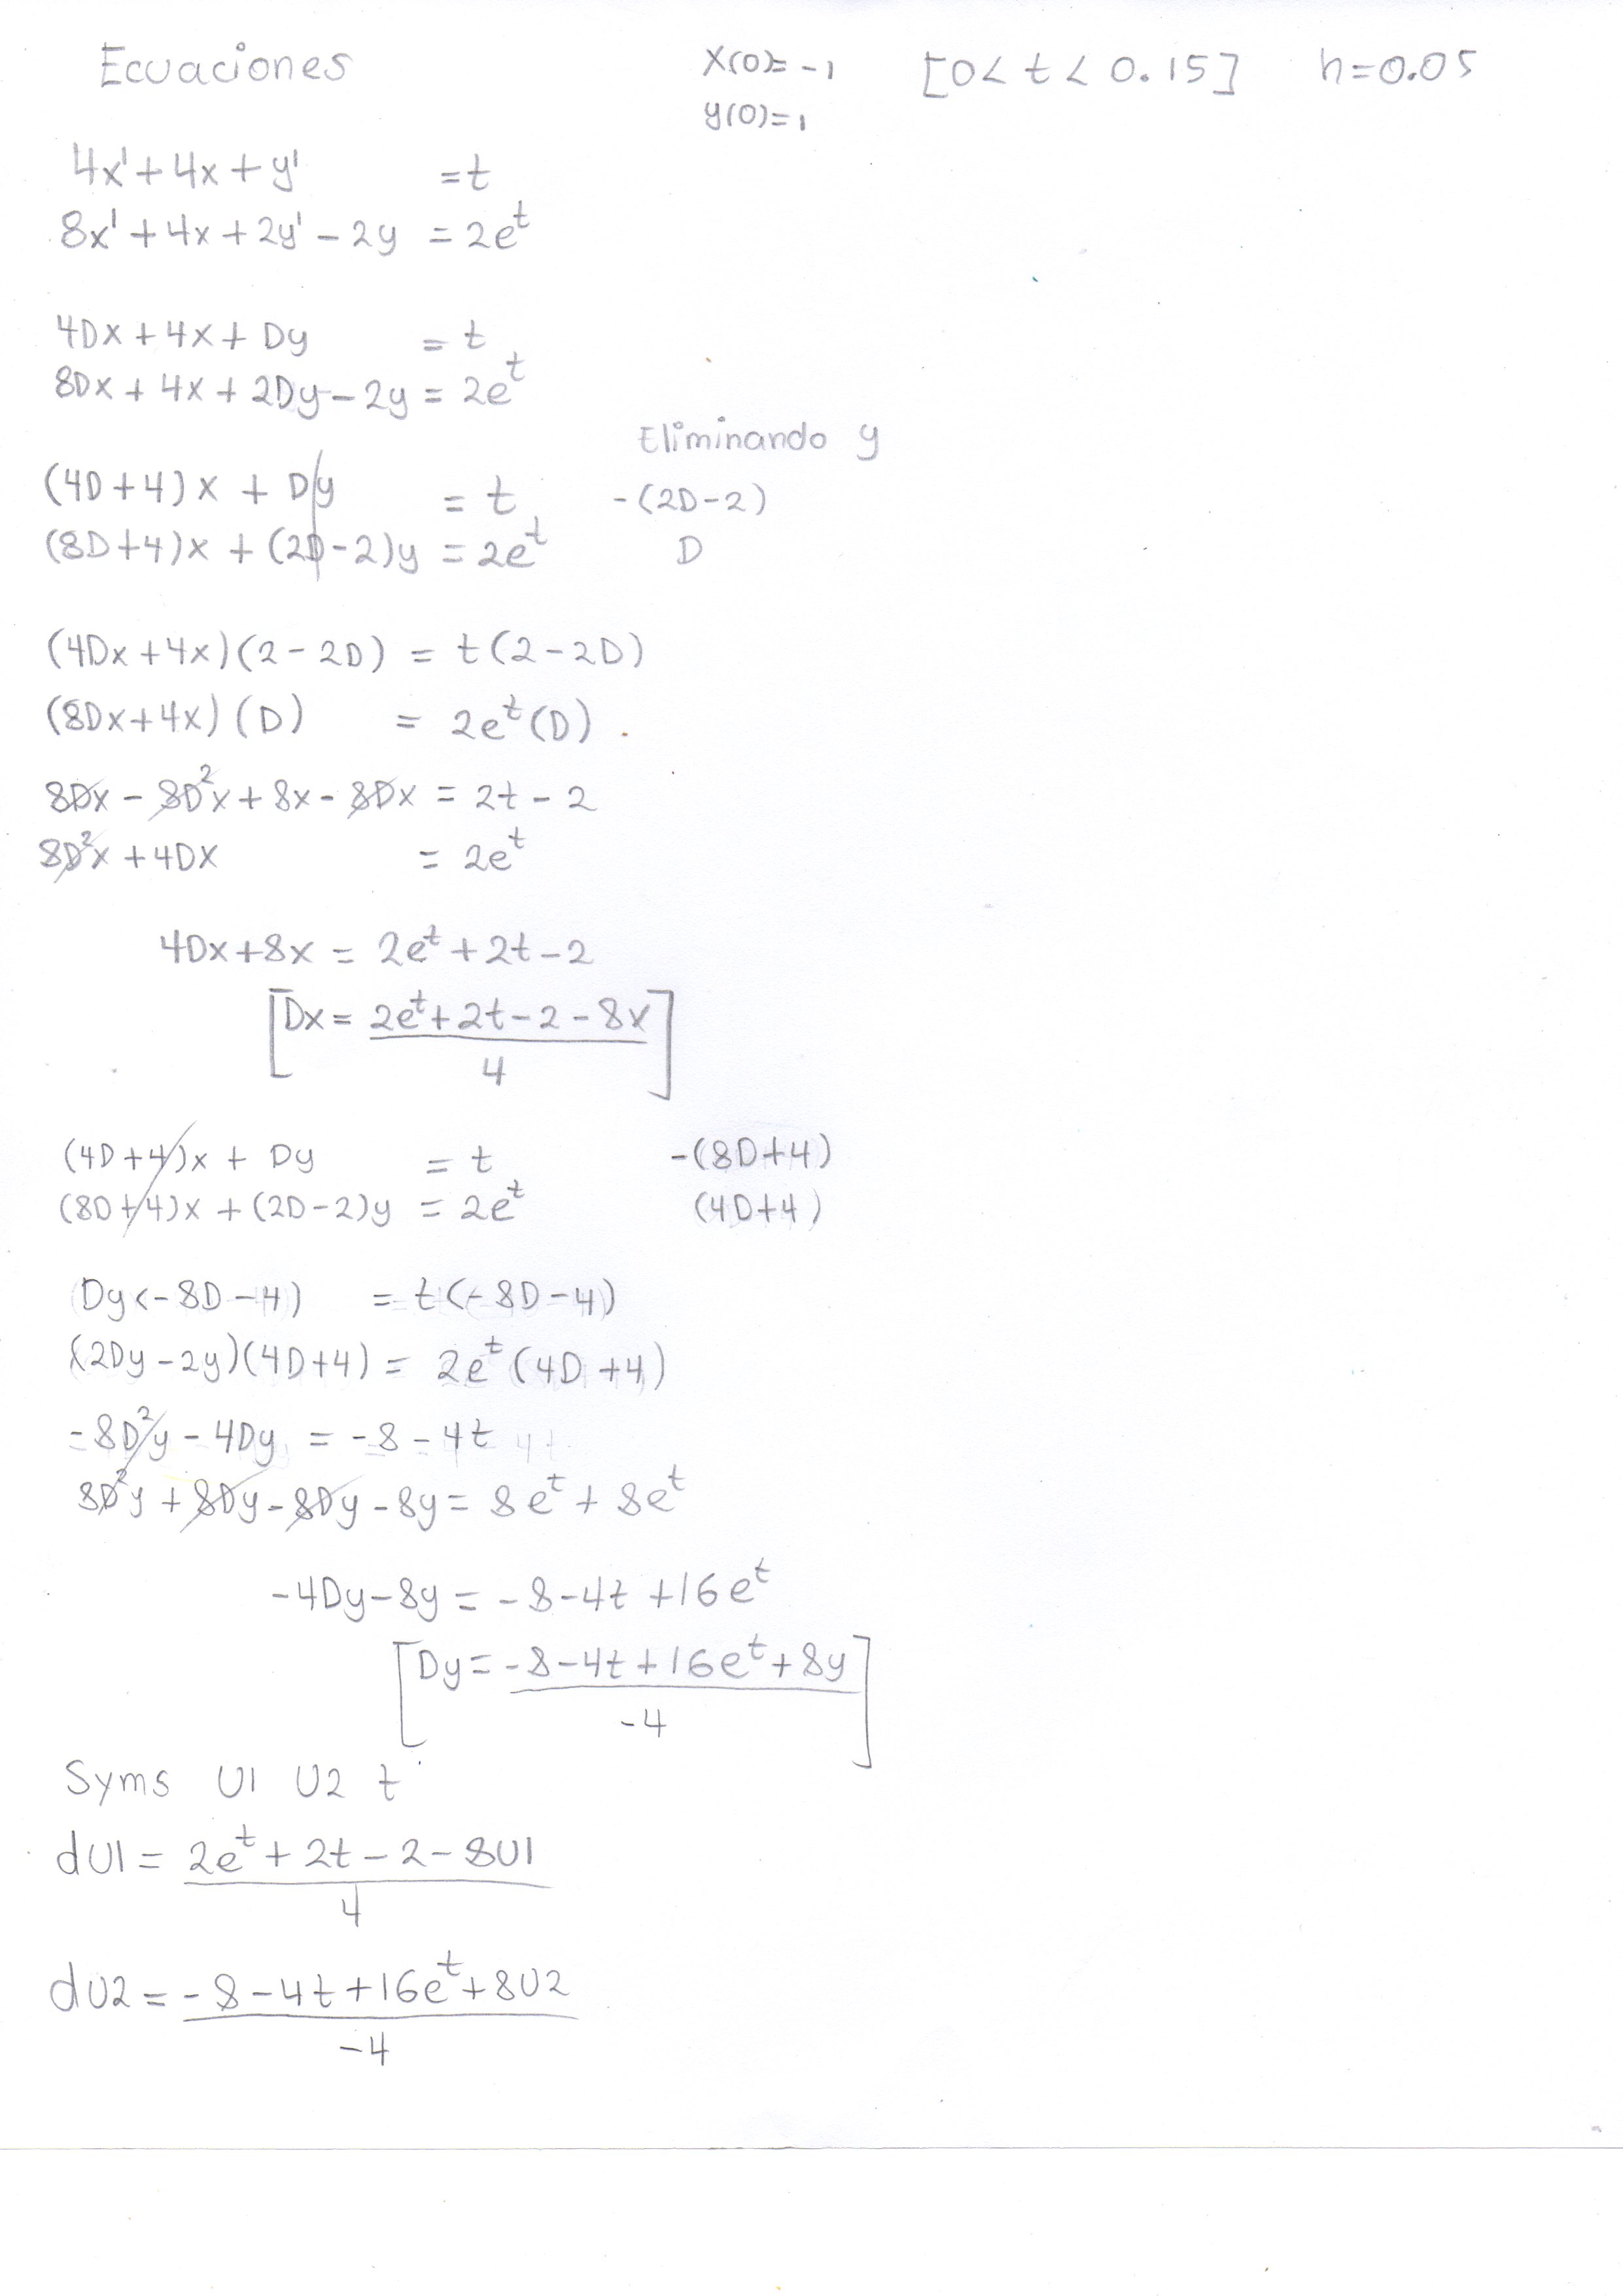 Ecuaciones x(0)=-1 [0< t < 0.15] h=0.05
y(0)=1
4x'+4x+y' =t
8x'+4x+2y'-2y =2e^t
4Dx+4x+Dy = t
8Dx+4x+2Dy-2y = 2e^t
Eliminando y
(4D+4)x + Dy = t -(2D-2)
(8D+4)x + (2D-2)y = 2e^t D
(4Dx+4x)(2-2D) = t(2-2D)
(8Dx+4x)(D) = 2e^t(D)
8Dx - 8D²x + 8x - 8Dx = 2t - 2
8D²x + 4Dx = 2e^t
4Dx+8x = 2e^t+2t-2
[Dx = 2e^t+2t-2-8x]
4
(4D+4)x + Dy = t -(8D+4)
(8D+4)x + (2D-2)y = 2e^t (4D+4)
Dy(-8D-4) = t(-8D-4)
(2Dy-2y)(4D+4) = 2e^t(4D+4)
-8D²y - 4Dy = -8-4t
8D²y + 8Dy - 8Dy - 8y = 8e^t + 8e^t
-4Dy-8y = -8-4t+16e^t
[Dy = -8-4t+16e^t+8y]
-4
Syms U1 U2 t
dU1 = 2e^t+2t-2-8U1
4
dU2 = -8-4t+16e^t+8U2
-4